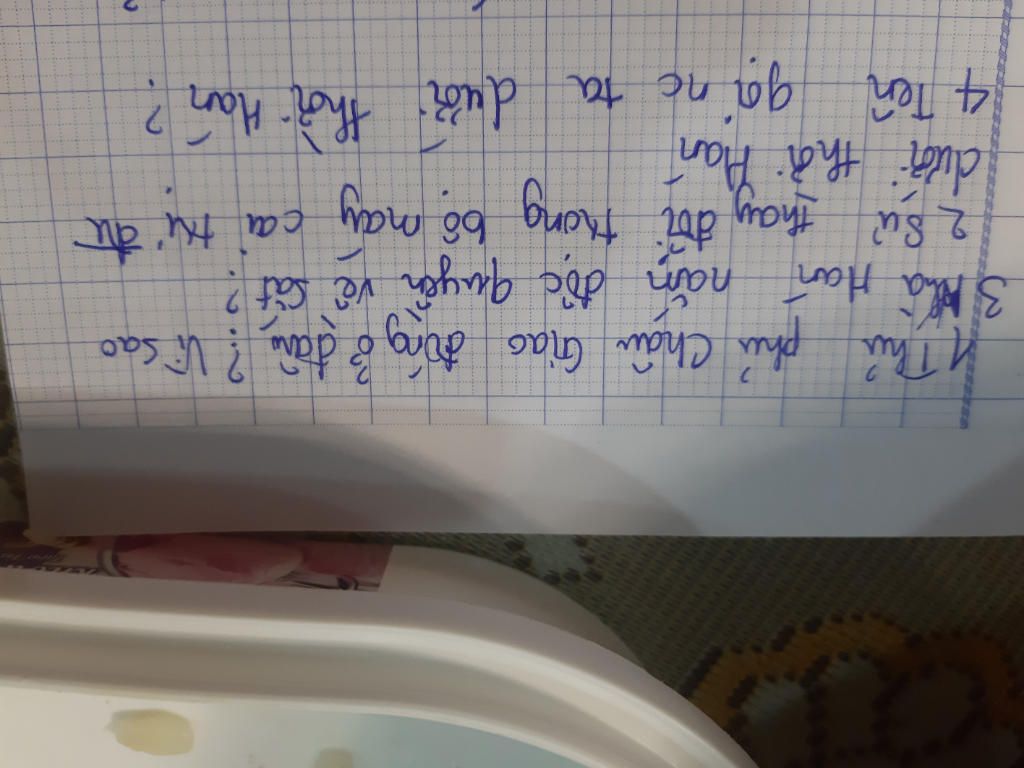 1 Thủ phủ Châu Giao đóng ở đâu? Vì sao
3 Nhà Hán nắm độc quyền về sắt?
2 Sự thay đổi trong bộ máy cai trị
dưới thời Hán
4 Tên gọi nc ta dưới thời Hán?